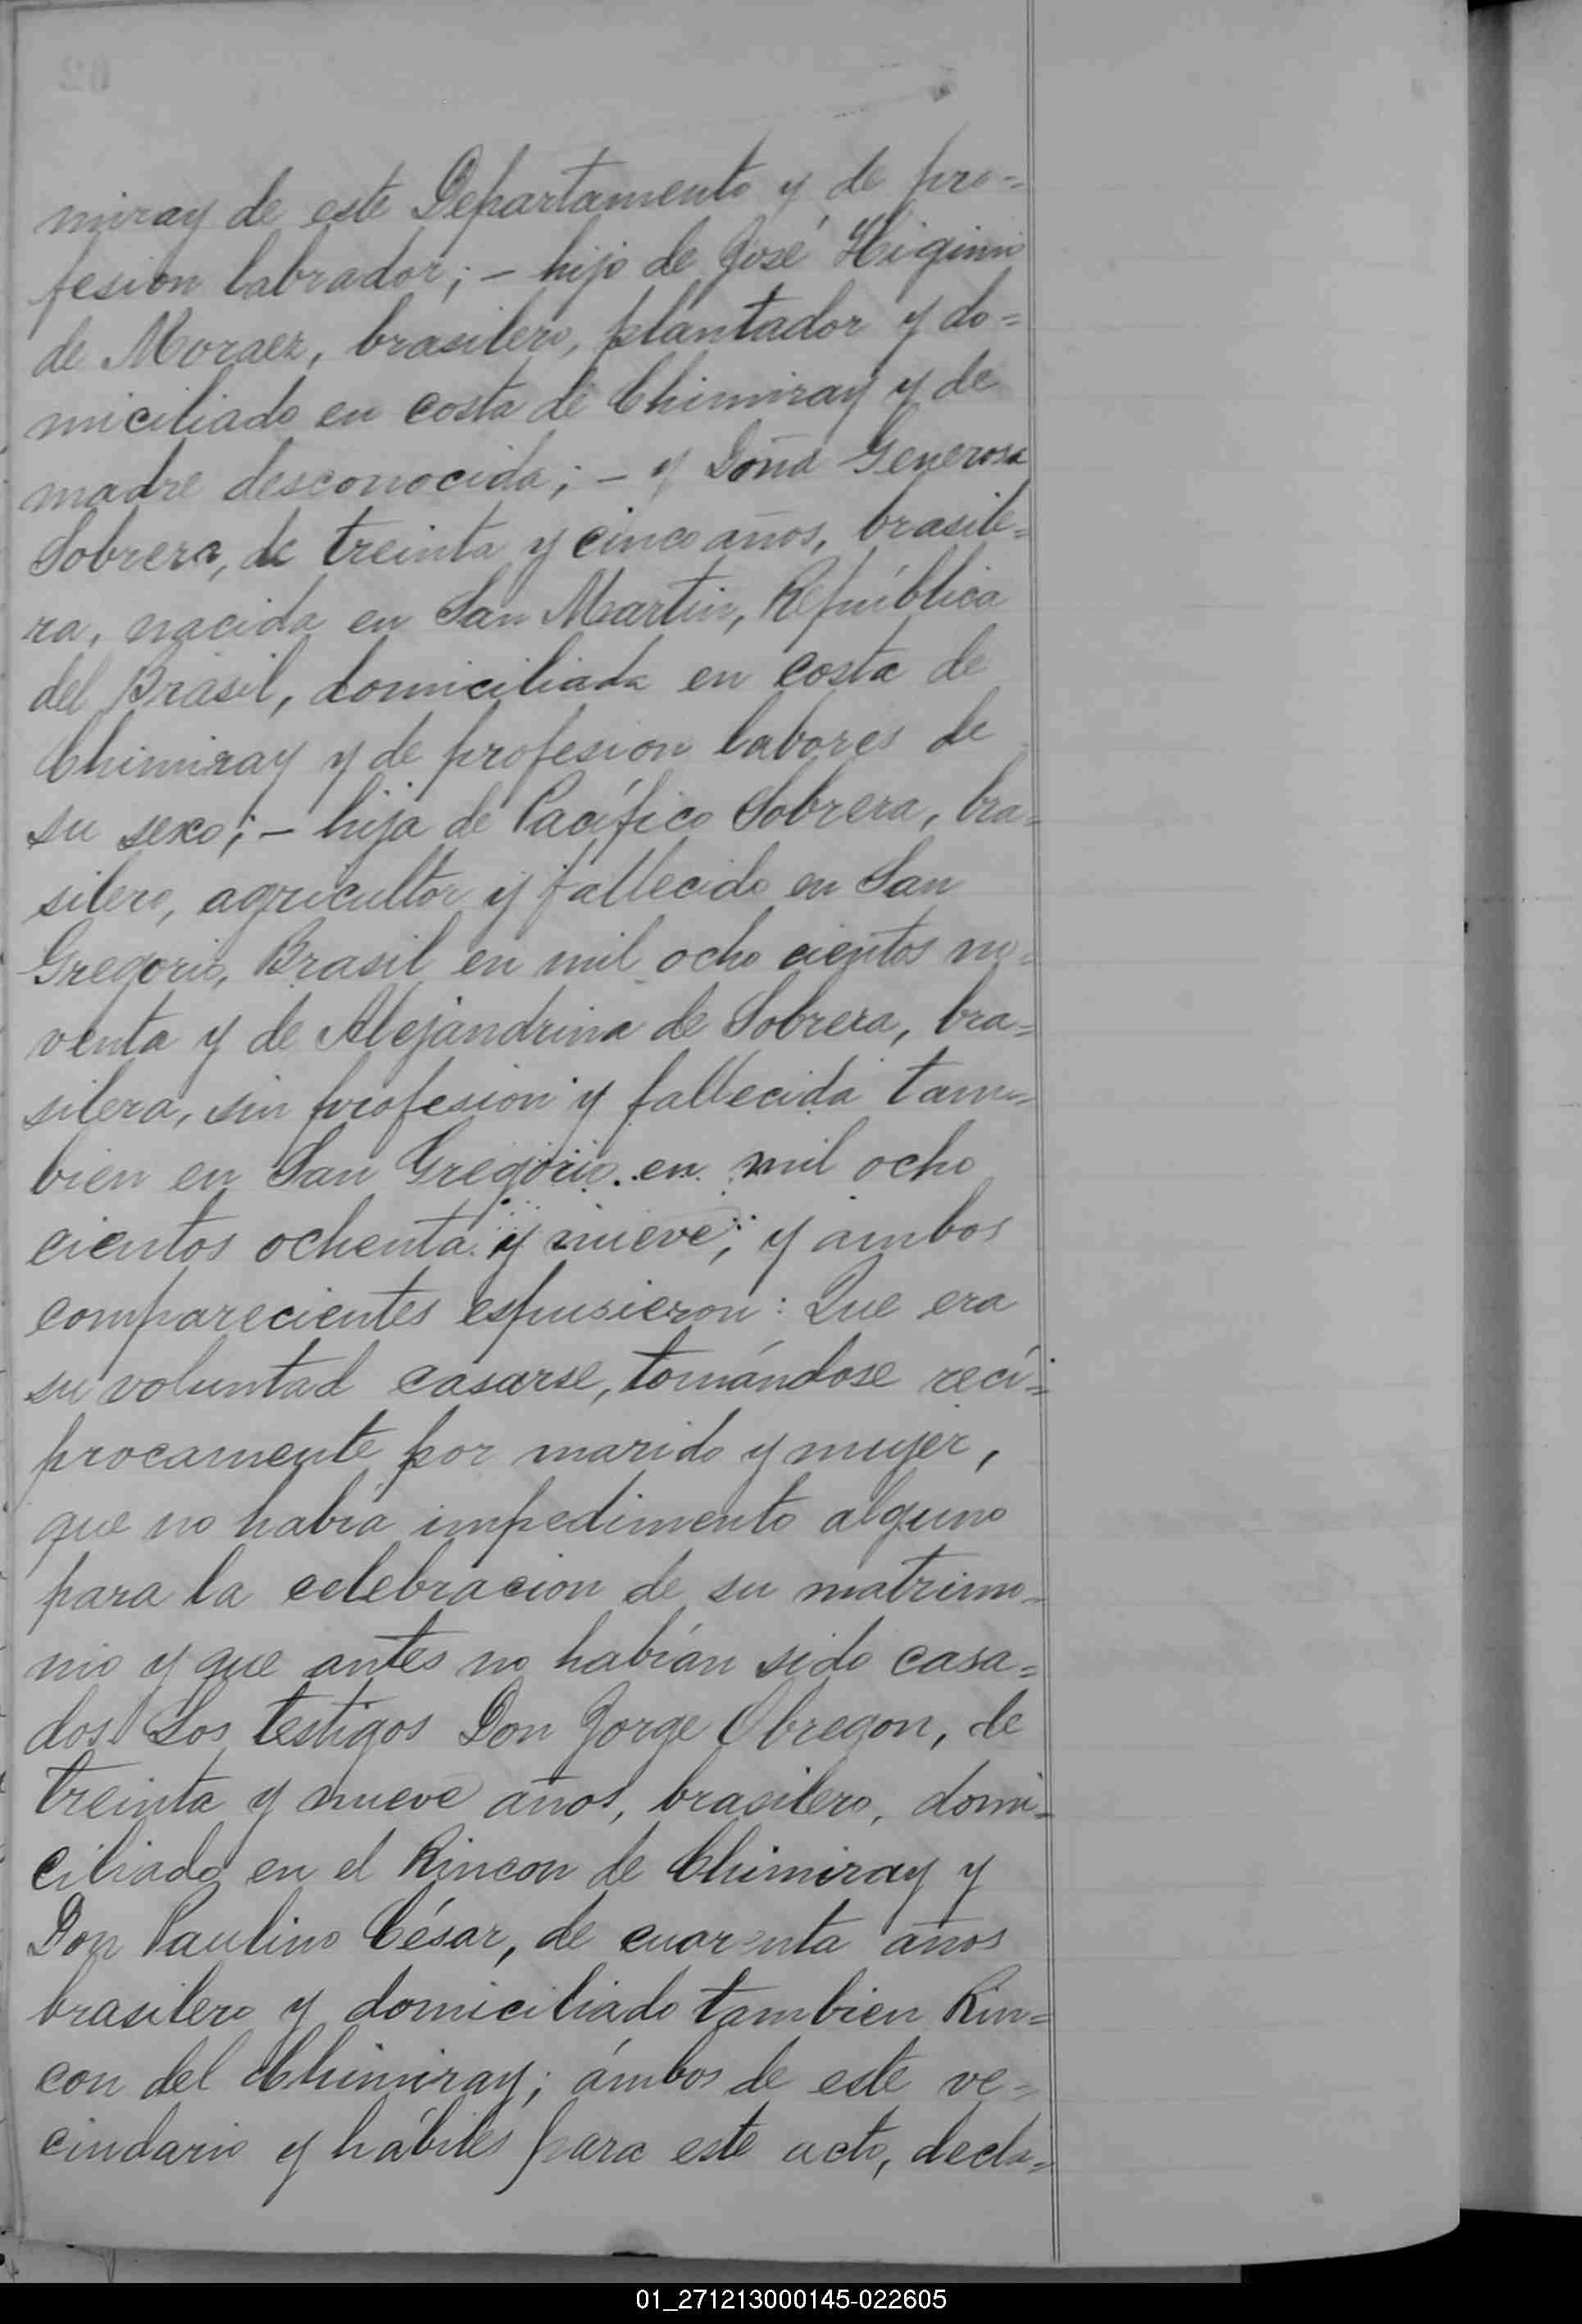 miray de este Departamento y de pro=
fesion labrador; – hijo de José Higinio
de Moraez, brasilero, plantador y do=
miciliado en costa de Chimiray y de
madre desconocida; – y Doña Generosa
Sobrera, de treinta y cinco años, brasile=
ra, nacida en San Martin, República
del Brasil, domiciliada en costa de
Chimiray y de profesion labores de
su sexo; – hija de Pacífico Sobrera, bra=
silero, agricultor y fallecido en San
Gregorio, Brasil en mil ocho cientos no=
venta y de Alejandrina de Sobrera, bra=
silera, sin profesion y fallecida tam=
bien en San Gregorio en mil ocho
cientos ochenta y nueve; y ambos
comparecientes espusieron: Que era
su voluntad casarse, tomándose recí=
procamente por marido y mujer,
que no había impedimento alguno
para la celebracion de su matrimo=
nio y que antes no habían sido casa=
dos. Los testigos Don Jorge Obregon, de
treinta y nueve años, brasilero, domi=
ciliado en el Rincon de Chimiray y
Don Paulino César, de cuarenta años
brasilero y domiciliado tambien Rin=
con del Chimiray; ámbos de este ve=
cindario y hábiles para este acto, decla=
01_271213000145-022605